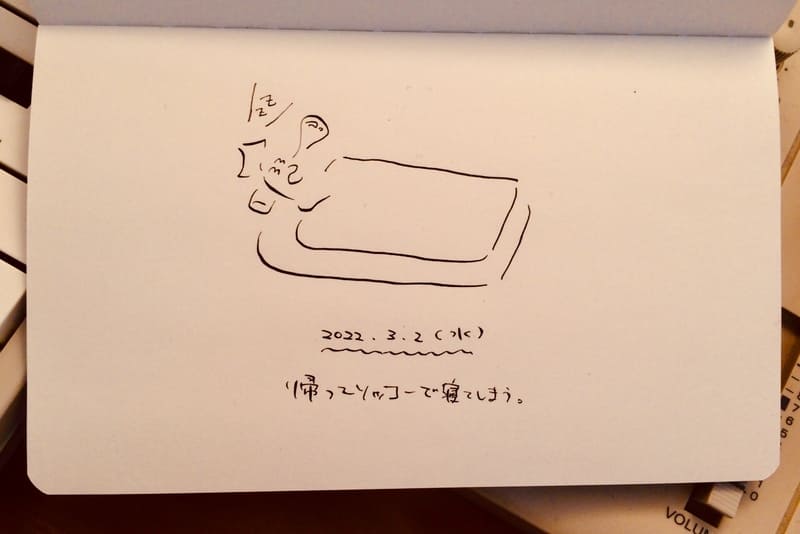 zzz
2022.3.2(水)
帰ってソッコーで寝てしまう。
7
6
5
1
0
VOLUM